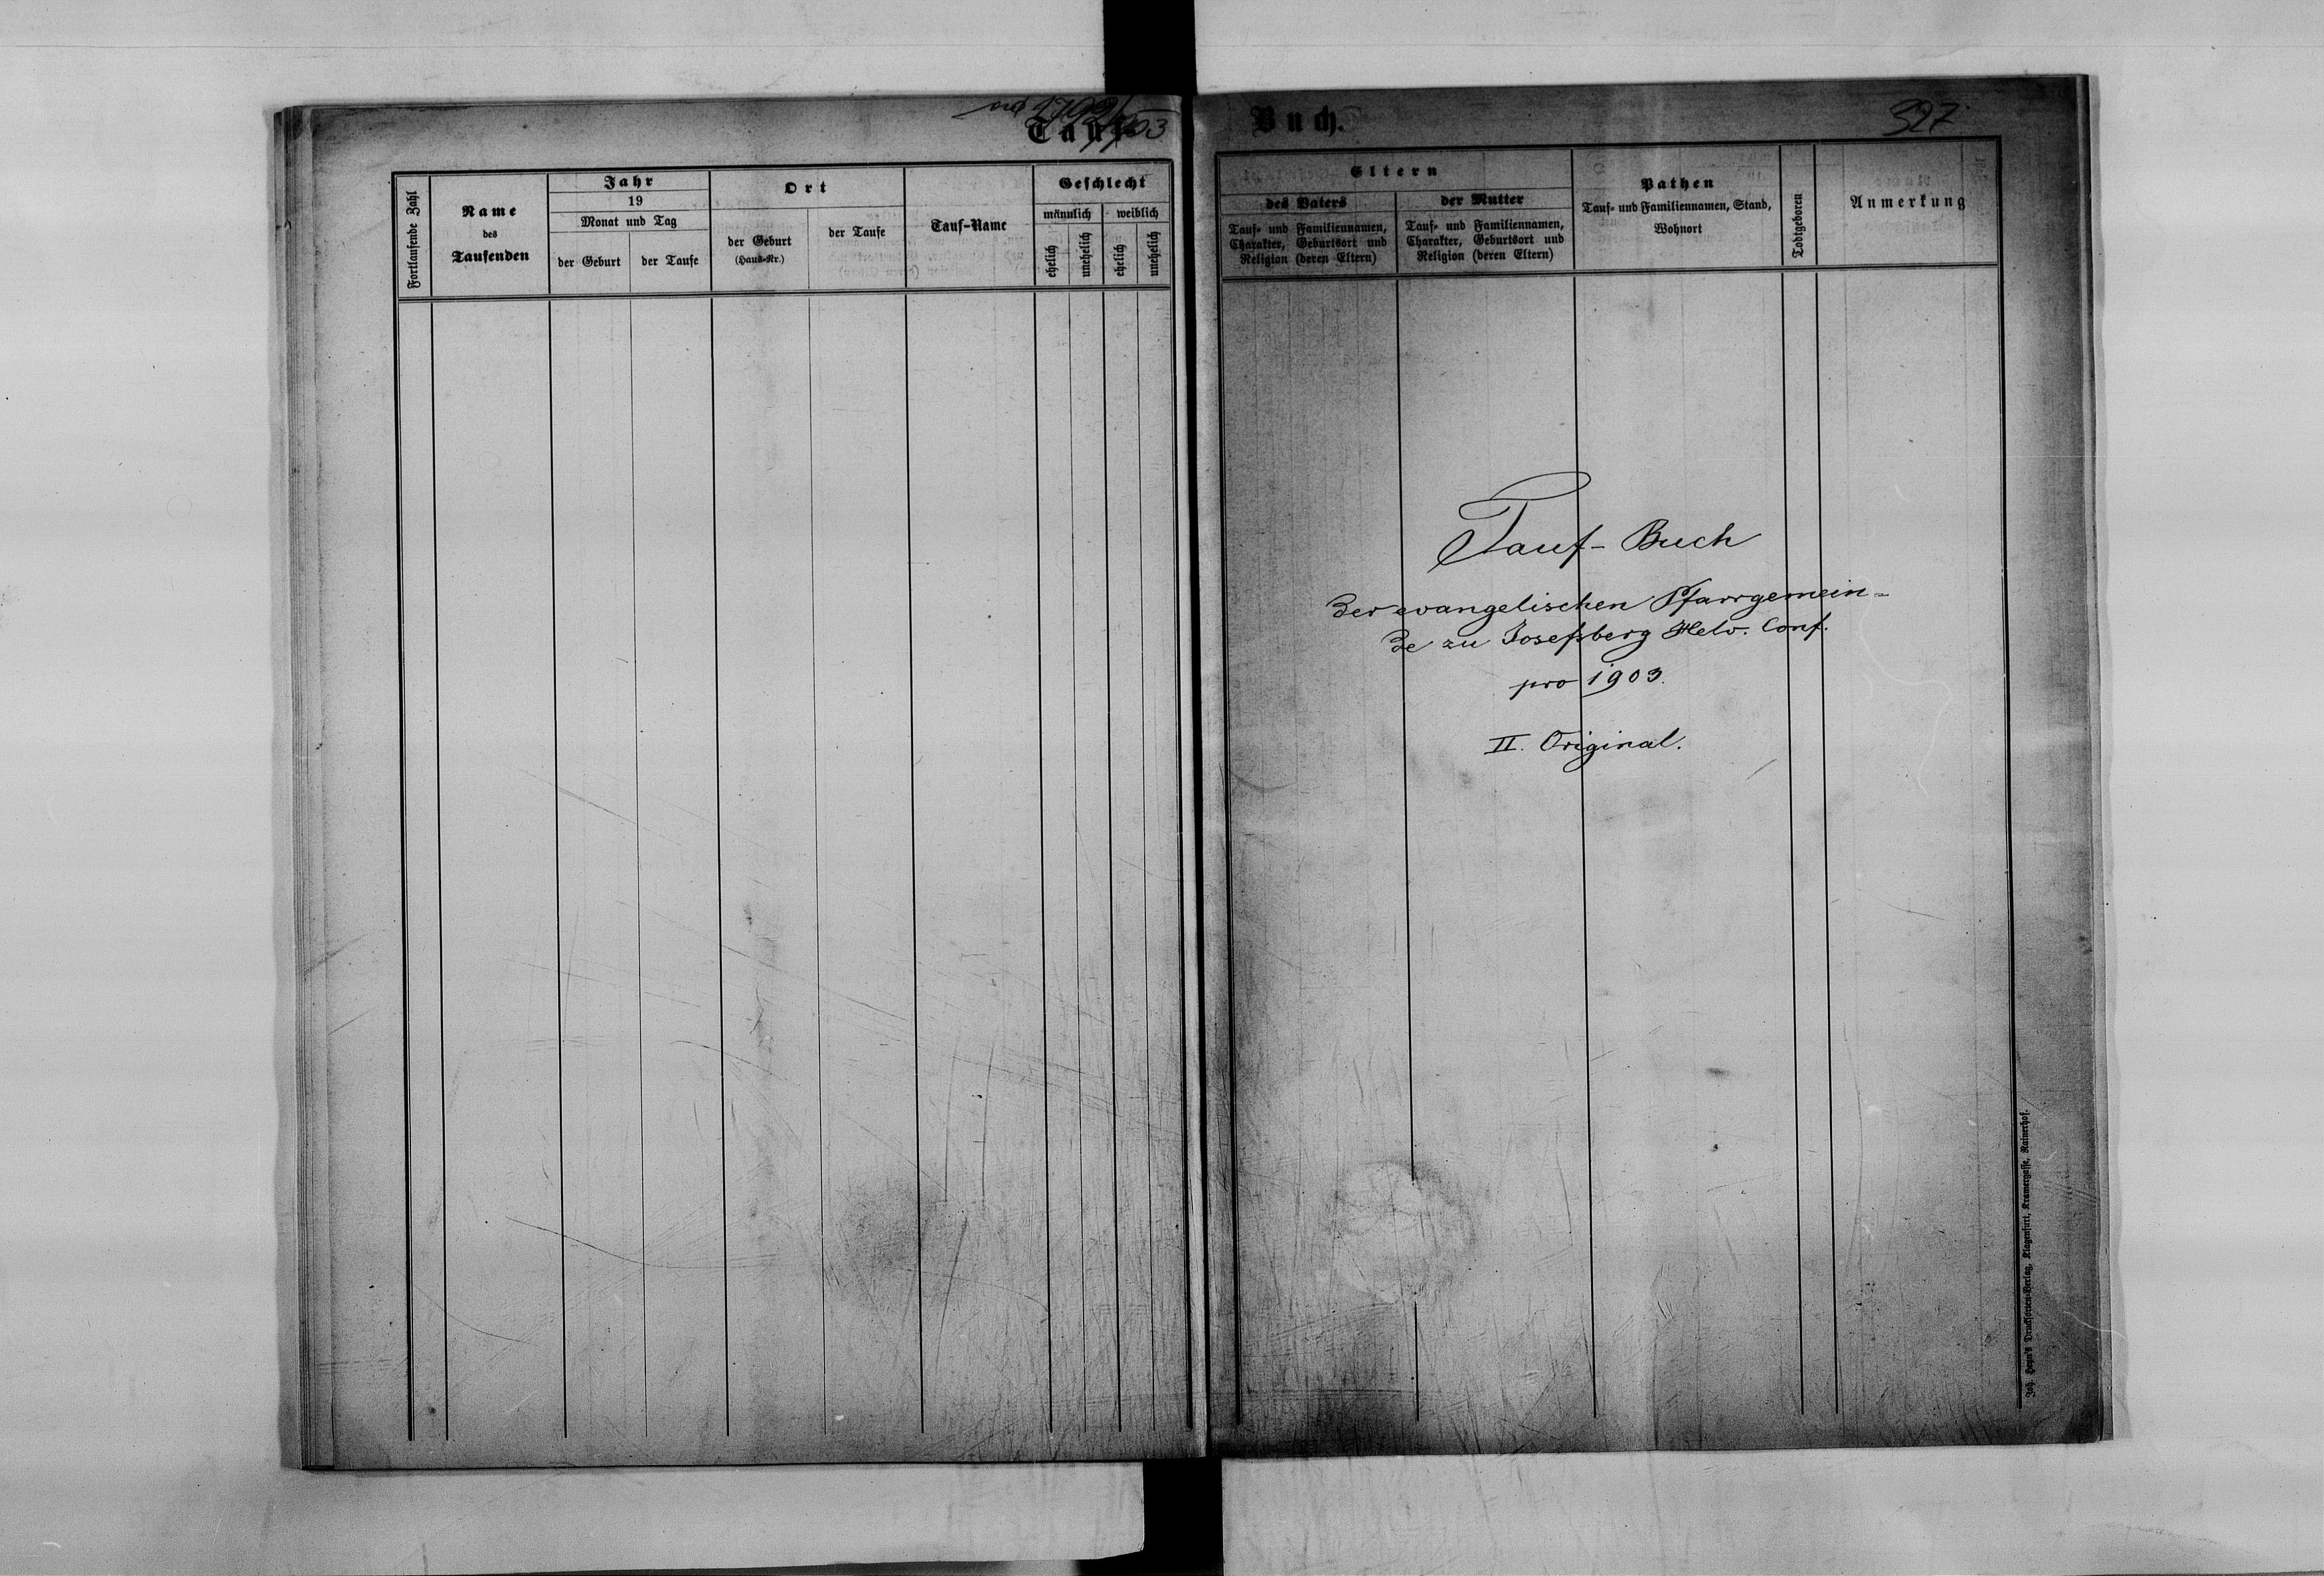 Tauf-
Fortlaufende Zahl
Name
des
Taufenden
Jahr
19
Monat und Tag
der Geburt
der Taufe
Ort
der Geburt
(Haus-Nr.)
der Taufe
Tauf-Name
Geschlecht
männlich
weiblich
ehelich
unehelich
ehelich
unehelich
Buch.
327
Eltern
des Vaters
Tauf- und Familiennamen,
Charakter, Geburtsort und
Religion (deren Eltern)
der Mutter
Tauf- und Familiennamen,
Charakter, Geburtsort und
Religion (deren Eltern)
Pathen
Tauf- und Familiennamen, Stand,
Wohnort
Todtgeboren
Anmerkung
Tauf-Buch
der evangelischen Pfarrgemein-
de zu Josefsberg Helv. Conf.
pro 1903.
II. Original.
Joh. Heyn's Drucksorten-Verlag, Klagenfurt, Kramergasse, Rainerhof.